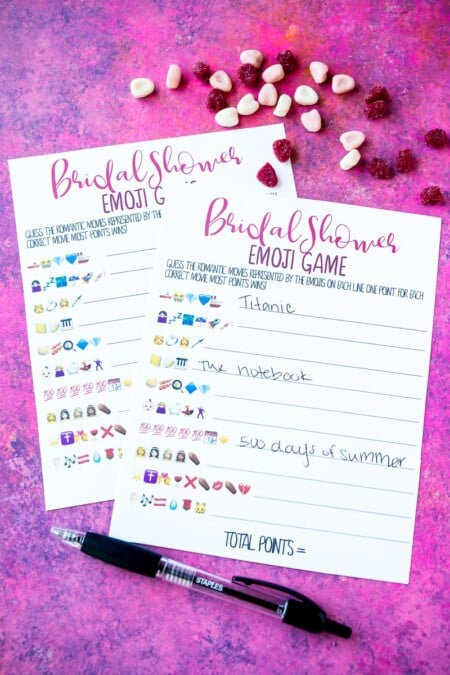 Bridal Shower
EMOJI G
GUESS THE ROMANTIC MOVIES REPRESENTED BY THE
CORRECT MOVIE MOST POINTS WINS!
Bridal Shower
EMOJI GAME
GUESS THE ROMANTIC MOVIES REPRESENTED BY THE EMOJIS ON EACH LINE ONE POINT FOR EACH
CORRECT MOVIE MOST POINTS WINS!
Titanic
The notebook
500 days of summer
TOTAL POINTS =
STAPLES